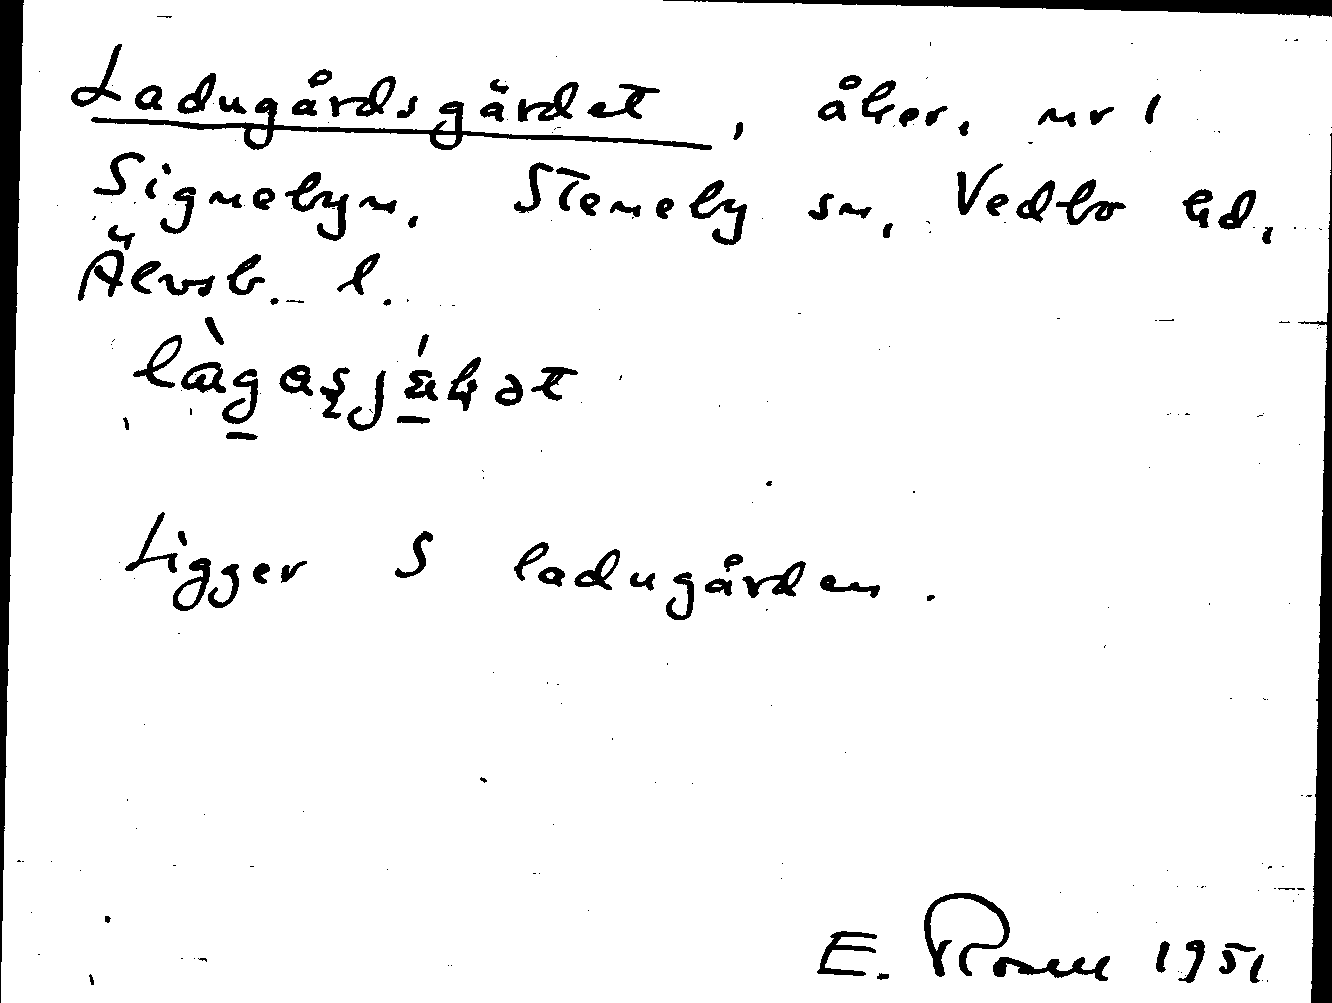 Ladugårdsgärdet, åker, nr 1
Signebyn, Steneby sn, Vedbo hd,
Älvsb. l.
Ligger S ladugården.
E. Rosell 1951